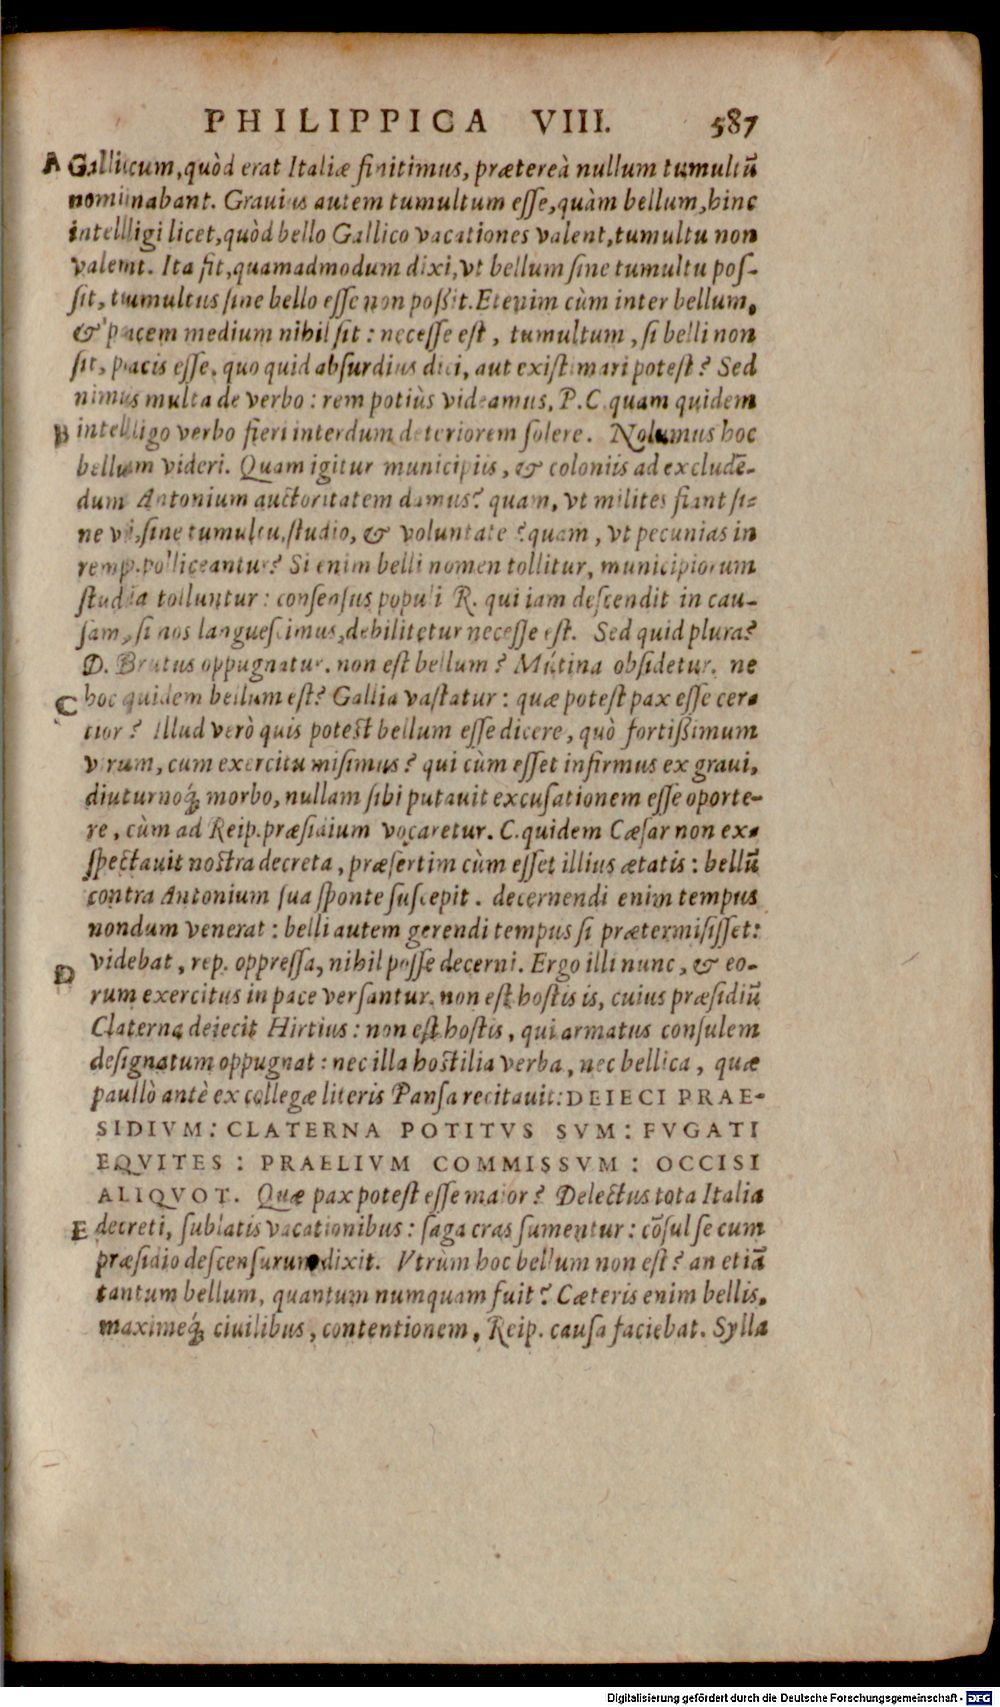 PHILIPPICA VIII. 587
A Gallicum, quòd erat Italiæ finitimus, prætereà nullum tumultū
nominabant. Grauius autem tumultum esse, quàm bellum, hinc
intelligi licet, quòd bello Gallico vacationes valent, tumultu non
valent. Ita fit, quamadmodum dixi, vt bellum sine tumultu pos-
sit, tumultus sine bello esse non poßit. Etenim cùm inter bellum,
& pacem medium nihil sit: necesse est, tumultum, si belli non
sit, pacis esse, quo quid absurdius dici, aut existimari potest? Sed
nimus multa de verbo: rem potiùs videamus, P. C. quam quidem
B intelligo verbo fieri interdum deteriorem solere. Nolumus hoc
bellum videri. Quam igitur municipiis, & coloniis ad excludē-
dum Antonium auctoritatem damus? quam, vt milites fiant si-
ne vi, sine tumultu, studio, & voluntate? quam, vt pecunias in
remp. polliceantur? Si enim belli nomen tollitur, municipiorum
studia tolluntur: consensus populi R. qui iam descendit in cau-
sam, si nos languescimus, debilitetur necesse est. Sed quid plura?
D. Brutus oppugnatur. non est bellum? Mutina obsidetur. ne
C hoc quidem bellum est? Gallia vastatur: quæ potest pax esse cer-
tior? Illud verò quis potest bellum esse dicere, quò fortißimum
virum, cum exercitu misimus? qui cùm esset infirmus ex graui,
diuturnoq́; morbo, nullam sibi putauit excusationem esse oporte-
re, cùm ad Reip. præsidium vocaretur. C. quidem Cæsar non ex-
spectauit nostra decreta, præsertim cùm esset illius ætatis: bellū
contra Antonium sua sponte suscepit. decernendi enim tempus
nondum venerat: belli autem gerendi tempus si prætermisisset:
D videbat, rep. oppressa, nihil posse decerni. Ergo illi nunc, & eo-
rum exercitus in pace versantur. non est hostis is, cuius præsidiū
Claterna deiecit Hirtius: non est hostis, qui armatus consulem
designatum oppugnat: nec illa hostilia verba, nec bellica, quæ
paullò antè ex collegæ literis Pansa recitauit: DEIECI PRAE-
SIDIVM: CLATERNA POTITVS SVM: FVGATI
EQVITES: PRAELIVM COMMISSVM: OCCISI
ALIQVOT. Quæ pax potest esse maior? Delectus tota Italia
E decreti, sublatis vacationibus: saga cras sumentur: cōsul se cum
præsidio descensurum dixit. Vtrùm hoc bellum non est? an etiā
tantum bellum, quantum numquam fuit? Cæteris enim bellis,
maximeq́; ciuilibus, contentionem, Reip. causa faciebat. Sylla
Digitalisierung gefördert durch die Deutsche Forschungsgemeinschaft - DFG